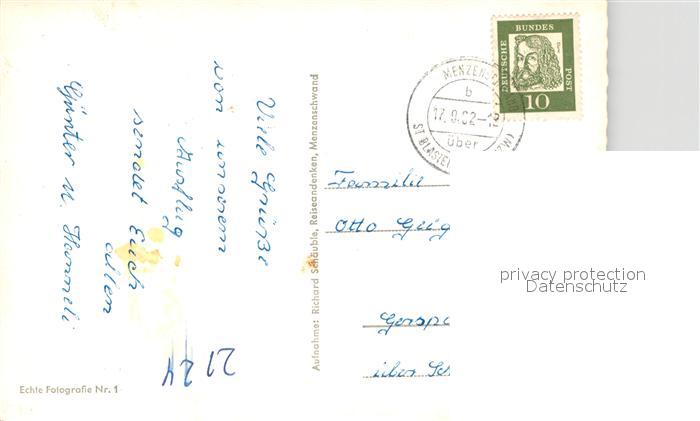 Viele Grüße
von unserem
Ausflug
sendet Euch
allen
Günter u. Hanneli
2124
Echte Fotografie Nr. 1
Aufnahme: Richard Schäuble, Reiseandenken, Menzenschwand
DEUTSCHE
BUNDES
POST
10
MENZENS
b
17.9.62-18
über
ST BLASIE
ZW)
Familie
Otto Geig
Gersp
über Sc
privacy protection
Datenschutz